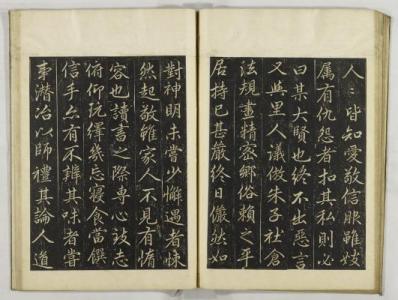 人〻皆知愛敬信服雖妓
属有仇怨者扣其私則必
曰某大賢也終不出惡言
又與里人議倣朱子社倉
法規畫精密鄉俗賴之平
居持己甚嚴終日儼然如
對神明未嘗少懈遇者悚
然起敬雖家人不見有惰
容也讀書之際專心致志
俯仰玩繹幾忘寝食當饌
信手亦有不辨其味者嘗
事潜冶以師禮其論人道